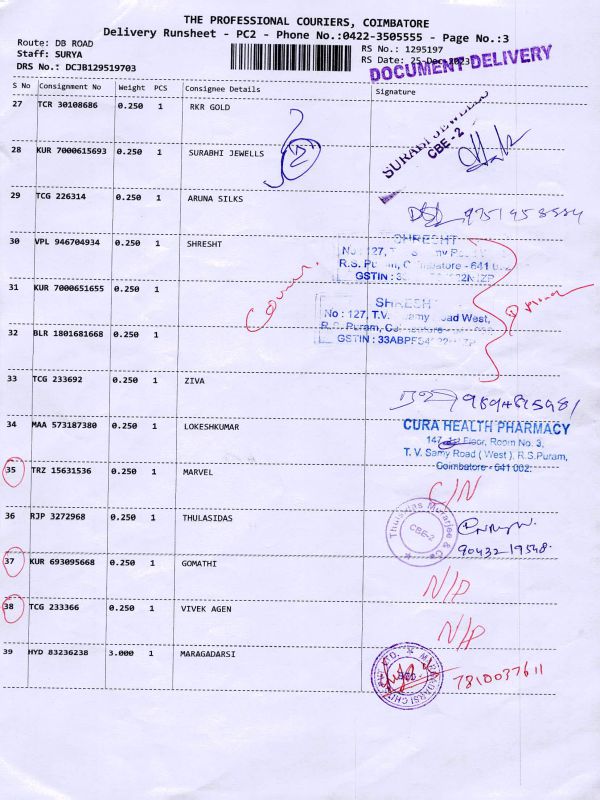 THE PROFESSIONAL COURIERS, COIMBATORE
Delivery Runsheet - PC2 - Phone No.:0422-3505555 - Page No.:3
Route: DB ROAD
Staff: SURYA
DRS No.: DCJB129519703
RS No.: 1295197
RS Date: 25-Dec-2023
DOCUMENT DELIVERY
S No Consignment No Weight PCS Consignee Details Signature
27 TCR 30108686 0.250 1 RKR GOLD
28 KUR 7000615693 0.250 1 SURABHI JEWELLS
SURABI JEWELLS
CBE - 2
29 TCG 226314 0.250 1 ARUNA SILKS
30 VPL 946704934 0.250 1 SHRESHT
SHRESHT
No : 127, T.V.
R.S. Puram, Coimbatore - 641 002
31 KUR 7000651655 0.250 1
SHRESHT
No : 127, T.V. Samy Road West,
R.S. Puram,
GSTIN :
32 BLR 1801681668 0.250 1
33 TCG 233692 0.250 1 ZIVA
34 MAA 573187380 0.250 1 LOKESHKUMAR
CURA HEALTH PHARMACY
147, 1st Floor, Room No. 3,
T. V. Samy Road ( West ), R.S.Puram,
Coimbatore - 641 002.
35 TRZ 15631536 0.250 1 MARVEL
C/N
36 RJP 3272968 0.250 1 THULASIDAS
Thulasidas Murarjee & Co
CBE-2
90432 19548
37 KUR 693095668 0.250 1 GOMATHI
N/P
38 TCG 233366 0.250 1 VIVEK AGEN
N/P
39 HYD 83236238 3.000 1 MARAGADARSI
7810037611